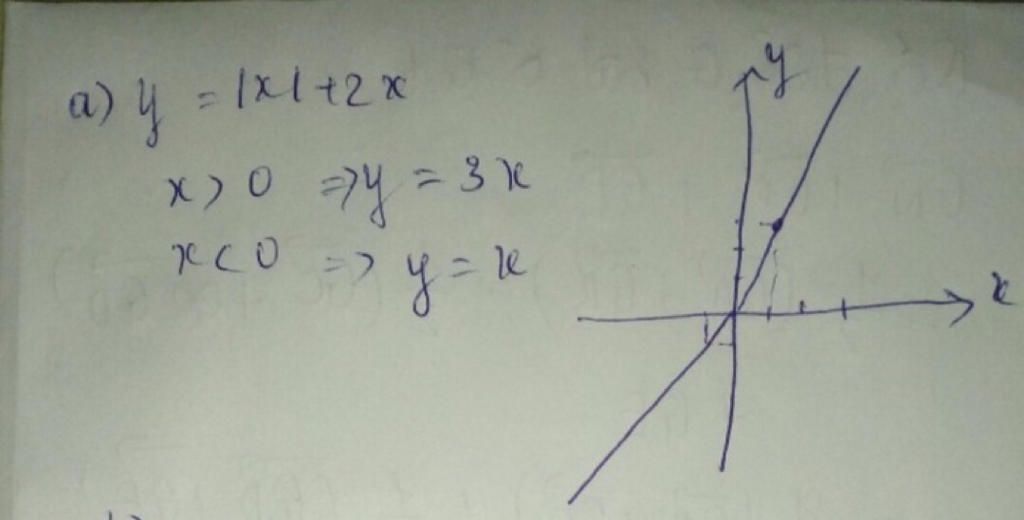 a) y = |x| + 2x
x > 0 => y = 3x
x < 0 => y = x
y
x